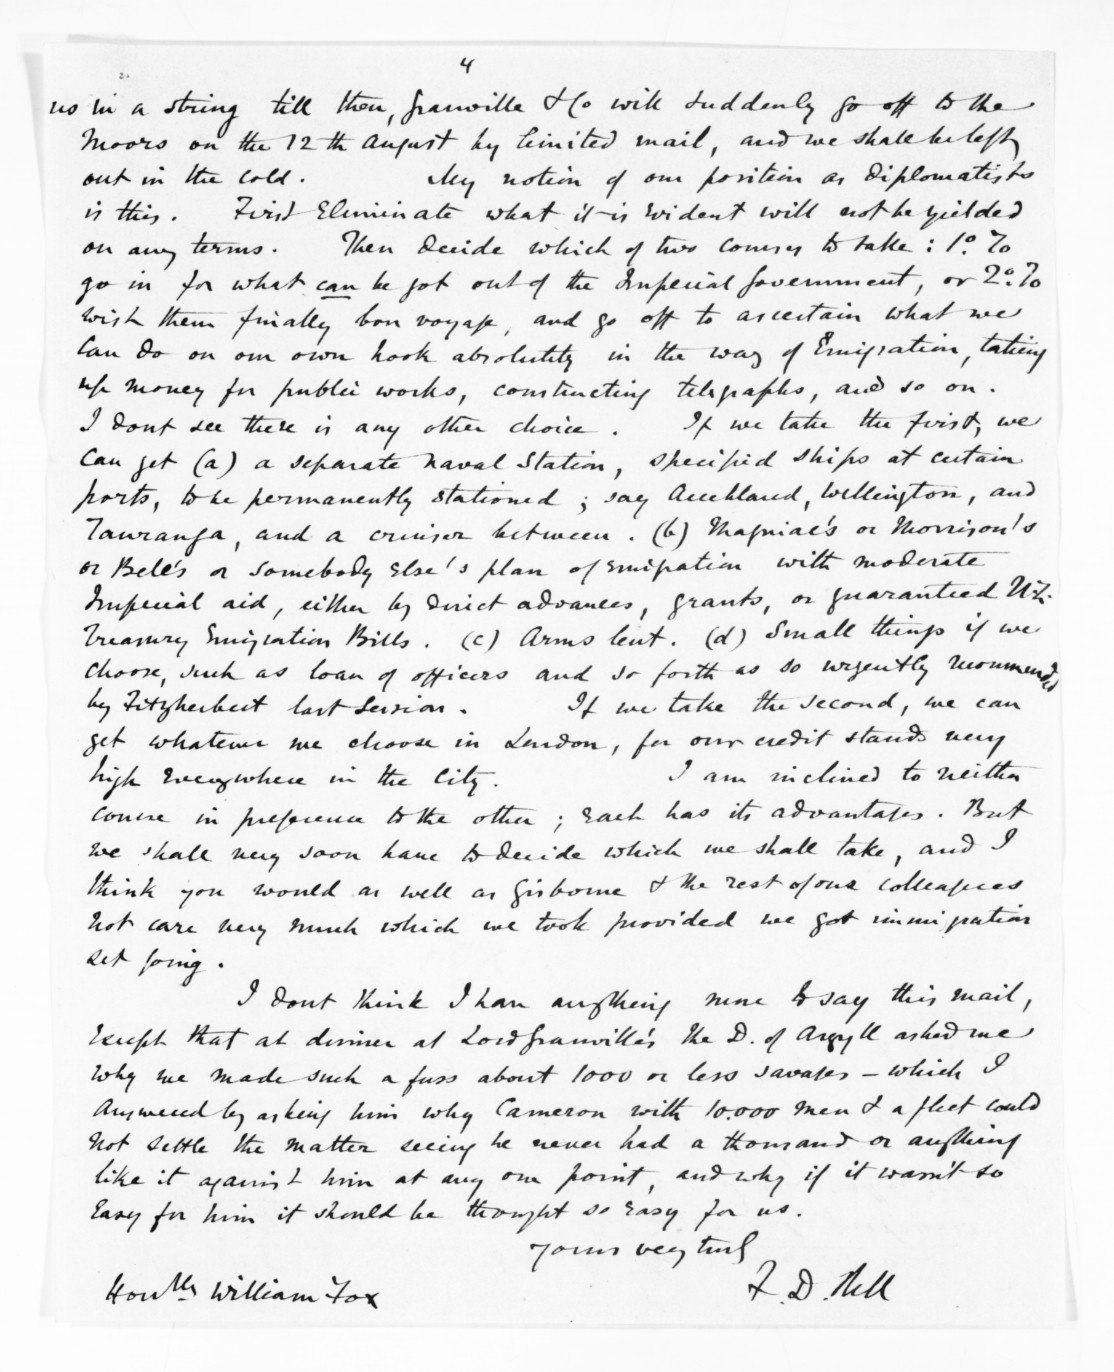 4
us in a string till then, Granville & Co will suddenly go off to the
Moors on the 12th August by limited mail, and we shall be left
out in the cold. My notion of our position as diplomatists
is this. First eliminate what it is evident will not be yielded
on any terms. Then decide which of two courses to take: 1º. To
go in for what can be got out of the Imperial Government, or 2º. To
wish them finally bon voyage, and go off to ascertain what we
can do on our own hook absolutely in the way of Emigration, taking
up money for public works, constructing telegraphs, and so on.
I dont see there is any other choice. If we take the first, we
can get (a) a separate Naval Station, specified ships at certain
ports, to be permanently stationed; say Auckland, Wellington, and
Tauranga, and a cruiser between. (b) Magniac's or Morrison's
or Bell's or somebody else's plan of emigration with moderate
Imperial aid, either by direct advances, grants, or guaranteed N.Z.
Treasury Emigration Bills. (c) Arms lent. (d) Small things if we
choose, such as loan of officers and so forth as so urgently recommended
by Fitzherbert last Session. If we take the second, we can
get whatever we choose in London, for our credit stands very
high everywhere in the City. I am inclined to neither
course in preference to the other; each has its advantages. But
we shall very soon have to decide which we shall take, and I
think you would as well as Gisborne & the rest of our colleagues
not care very much which we took provided we got immigration
set going.
I dont think I have anything more to say this mail,
except that at dinner at Lord Granville's the D. of Argyll asked me
why we made such a fuss about 1000 or less savages – which I
answered by asking him why Cameron with 10.000 men & a fleet could
not settle the matter seeing he never had a thousand or anything
like it against him at any one point, and why if it wasn't so
easy for him it should be thought so easy for us.
Yours very truly
F. D. Bell
Honble William Fox